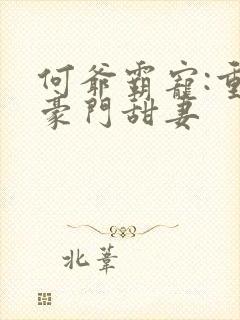 何爷霸寵:重
豪門甜妻
北葦